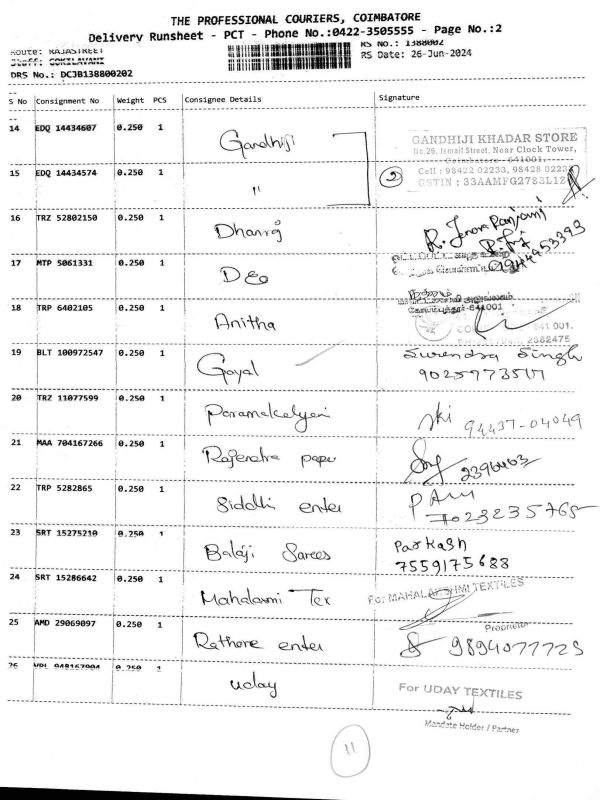 THE PROFESSIONAL COURIERS, COIMBATORE
Delivery Runsheet - PCT - Phone No.:0422-3505555 - Page No.:2
Route: RAJASTREET
RS No.: 1388002
RS Date: 26-Jun-2024
DRS No.: DCJB138800202
S No Consignment No Weight PCS Consignee Details Signature
14 EDQ 14434607 0.250 1 Gandhiji
GANDHIJI KHADAR STORE
No.26, Ismail Street, Near Clock Tower,
Coimbatore - 641001.
Cell : 98422 02233, 98428 02233
GSTIN : 33AAMFG2783L1Z
15 EDQ 14434574 0.250 1 " 2
16 TRZ 52802150 0.250 1 Dhanraj
17 MTP 5061331 0.250 1 DEO
18 TRP 6402105 0.250 1 Anitha
641001
641 001.
2382475
19 BLT 100972547 0.250 1 Goyal Surendra Singh
20 TRZ 11077599 0.250 1 Paramakalyani 94437-04049
21 MAA 704167266 0.250 1 Rajendra paper 2396463
22 TRP 5282865 0.250 1 Siddhi enter
7023235765
23 SRT 15275210 0.250 1 Balaji Sarees Parkash
7559175688
24 SRT 15286642 0.250 1 Mahalaxmi Tex For MAHALAKSHMI TEXTILES
Proprietor
25 AMD 29069097 0.250 1 Rathore enter 9894077723
26 VPL 948167904 0.250 1 uday For UDAY TEXTILES
Mandate Holder / Partner
11